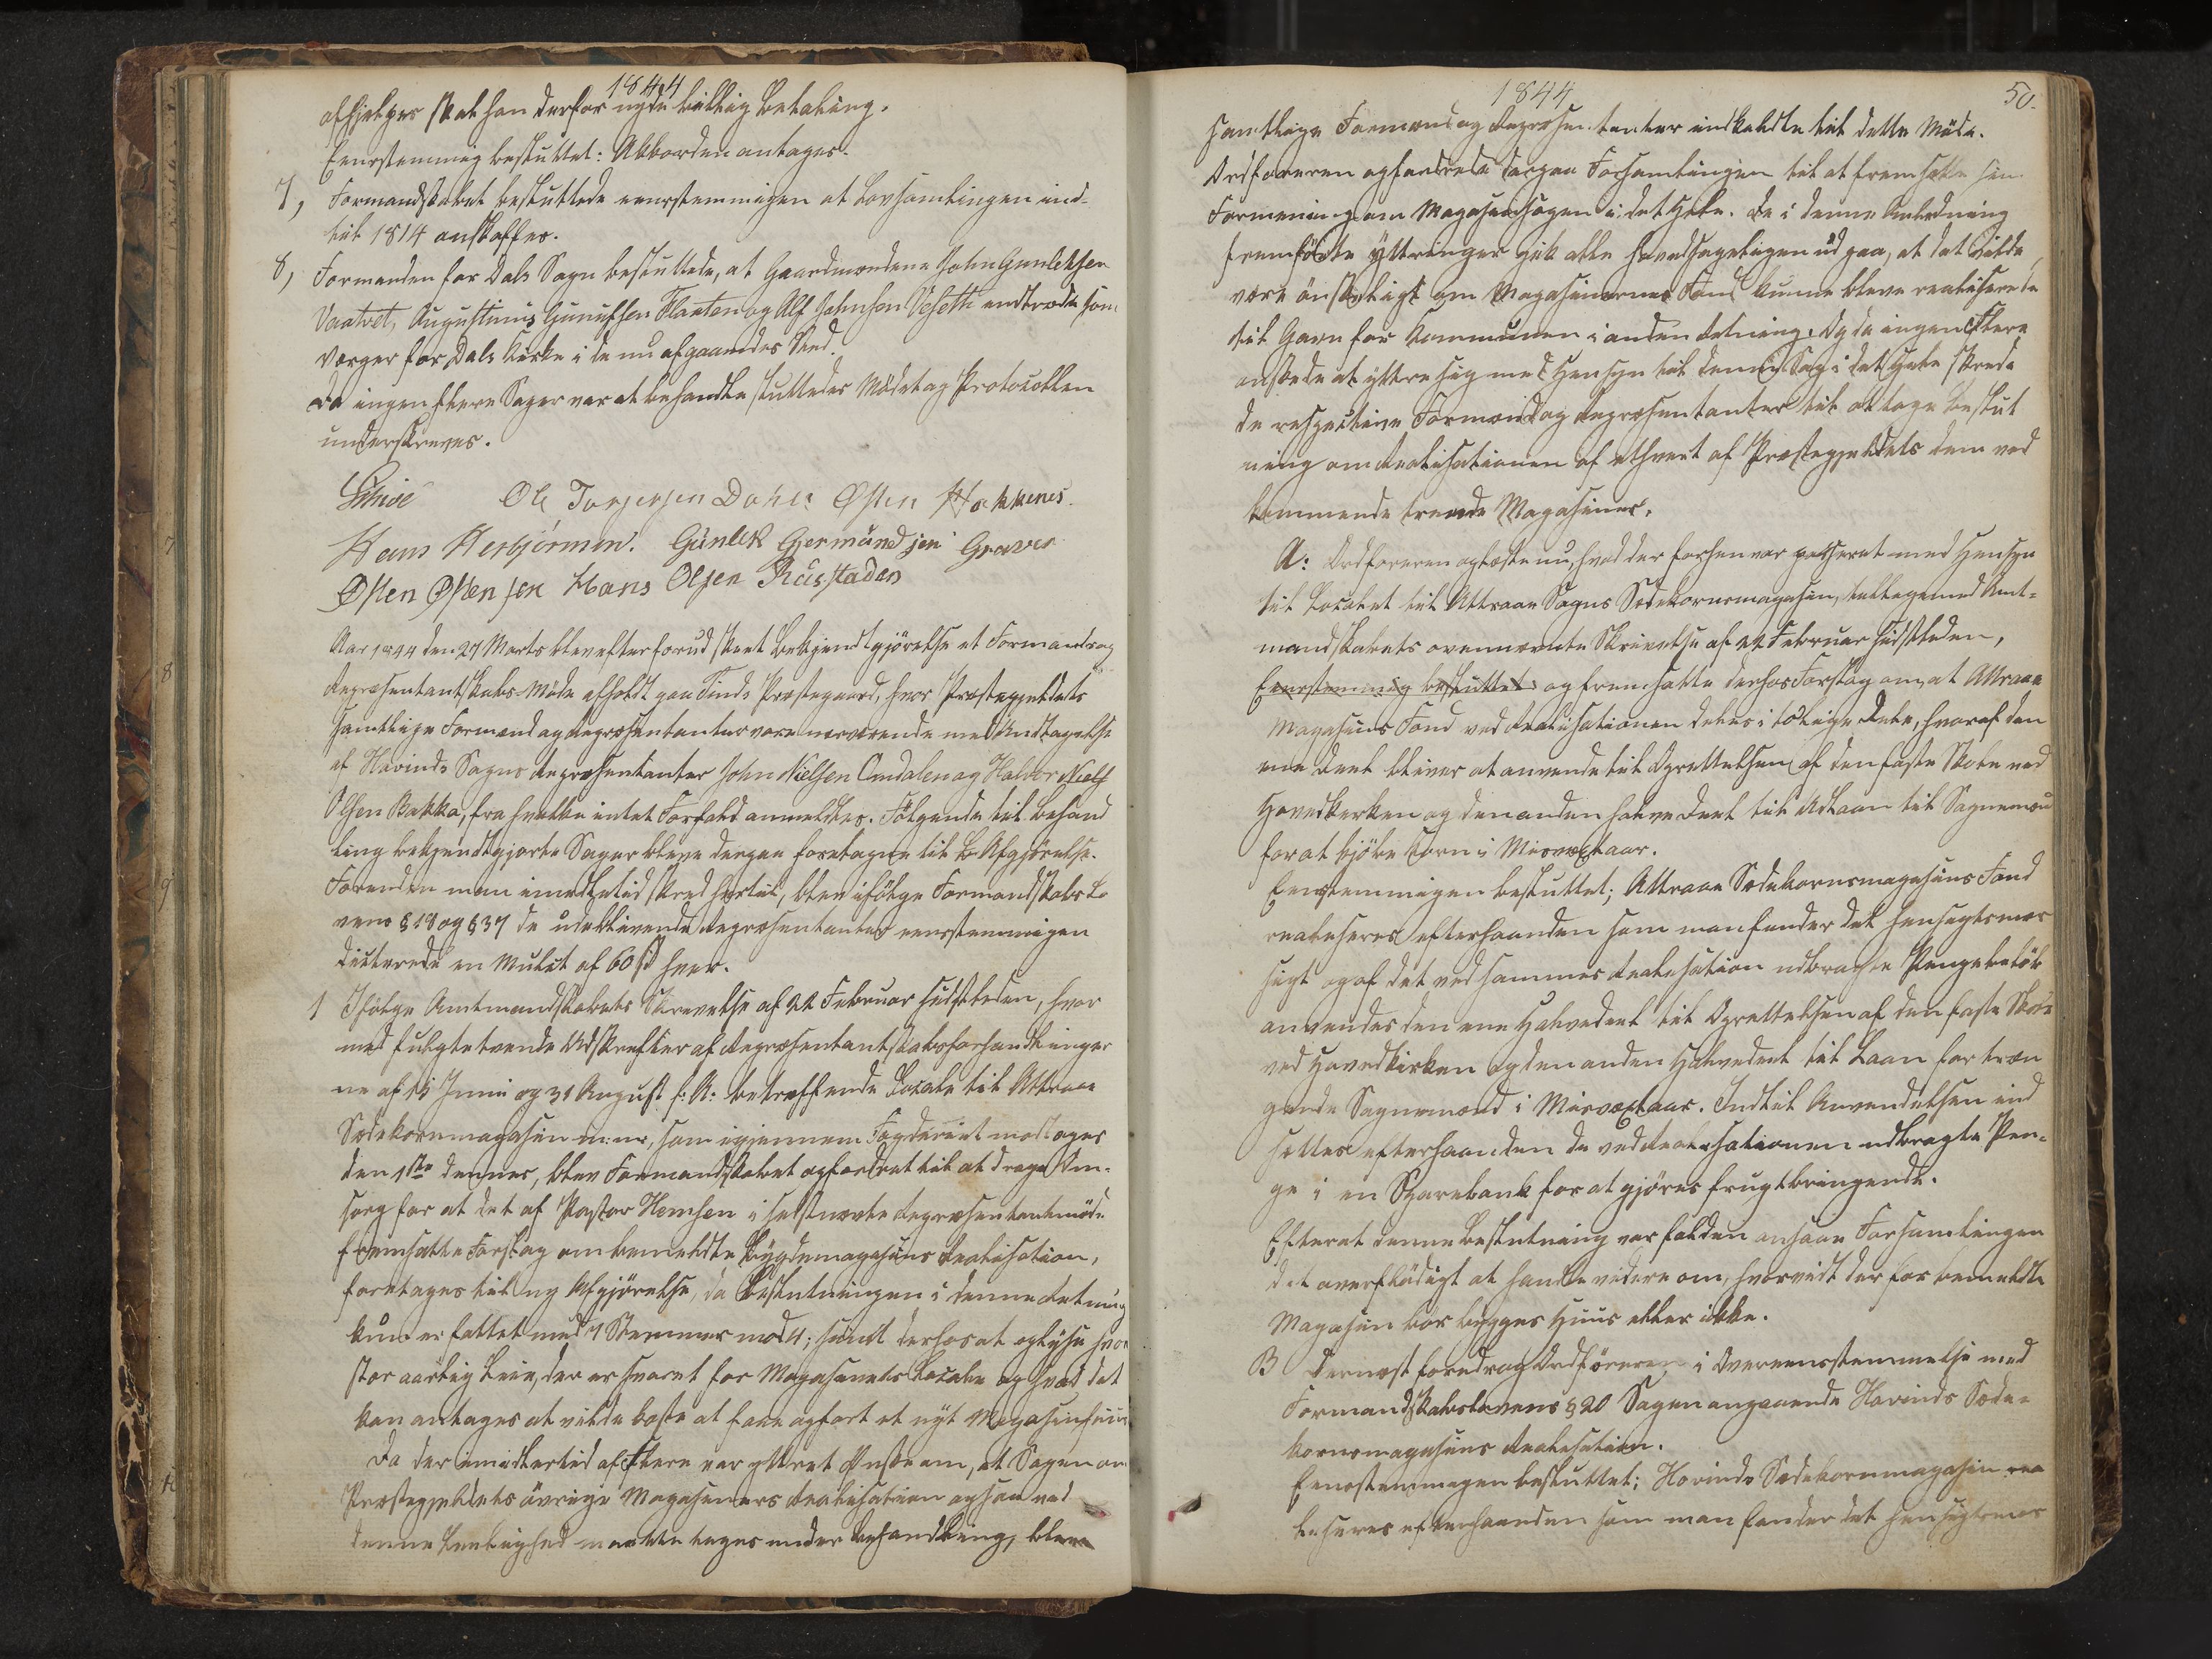 1844
afhjelpes skal han derfor nyde billig Betaling.
Eenstemmig besluttet: Akkorden antages.
7, Formandskabet besluttede eenstemmigen at Lovsamlingen ind-
til 1814 anskaffes.
8, Formanden for Dals Sogn besluttede, at Gaardmændene John Gunleksen
Vaatvet, Augustinus Gunufsen Flaaten og Alf Johnsen Veseth indtræde som
Værger for Dals Kirke i de nu afgaaendes Sted.
Da ingen flere Sager var at behandle sluttedes Mødet og Protocollen
underskreves.
Schive Ole Torjersen Dahle Østen Hakkenes.
Hans Kerbjørnsen. Günlek Germündsen Graver
Østen Østensen Hans Olsen Russtaden
Aar 1844 den 27 Marts blev efter forud skeet Bekjendtgjørelse et Formænds og
Repræsentantskabs-Møde afholdt paa Tinds Præstegaard, hvor Præstegjeldets
samtlige Formænd og Repræsentanter vare nærværende med Undtagelse
af Hovinds Sogns Repræsentanter John Nielsen Omdalen og Halvor Niels
Olsen Bakka, fra hvilke intet Forfald anmeldtes. Følgende til Behand
ling bekjendtgjorte Sager bleve derpaa foretagne til Afgjørelse.
Forinden man imidlertid skred hertil, blev ifølge Formandskabslo
vens § 18 og § 37 de udeblivende Repræsentanter eenstemmigen
dicterede en Mulct af 60 ß hver.
1 Ifølge Amtmandskabets Skrivelse af 22 Februar sidstleden, hvor
med fulgte tvende Udskrifter af Repræsentantskabsforhandlinger
ne af 15 Junii og 31 August f: A: betræffende Locale til Attraae
Sædekornmagasin m:m:, som igjennem Fogderiet modtoges
den 1ste dennes, blev Formandskabet opfordret til at drage Om-
sorg for at det af Pastor Hemsen i sidstnævnte Repræsentantmøde
fremsatte Forslag om bemeldte Bygdemagasins Realisation,
foretages til ny Afgjørelse, da Beslutningen i denne Retning
kun er fattet med 7 Stemmer mod 4; samt derhos at oplyse hvor
stor aarlig Leie, der er svaret for Magasinets Locale og hvad det
kan antages at ville koste at faae opført et nyt Magasinhuus
Da der imidlertid af Flere var yttret Ønske om, at Sagen om
Præstegjeldets øvrige Magasiners Realisation ogsaa ved
denne Leilighed maatte tages under Behandling, bleve
1844 50.
samtlige Formænd og Repræsentanter indkaldte til dette Møde.
Ordføreren opfordrede derpaa Forsamlingen til at fremsætte sin
Formening om Magasinsagen i det Hele. De i denne Anledning
fremførte Yttringer gik alle hovedsageligen ud paa, at det vilde
være ønskeligt om Magasinernes Fond kunne bleve realiserede
til Gavn for Kommunen i anden Retning. Og da ingen Flere
ønskede at yttre sig med Hensyn til denne Sag i det Hele skrede
de respective Formænd og Repræsentanter til at tage Beslut
ning om Realisationen af ethvert af Præstegjeldets dem ved
kommende trende Magasiner.
A: Ordføreren oplæste nu, hvad der forhen var passeret med Hensyn
til Localet til Attraae Sogns Sædekornsmagasin, tilligemed Amt-
mandskabets ovennævnte Skrivelse af 22 Februar sidstleden,
Eenstemmig besluttet og fremsatte derhos Forslag om, at Attraae
Magasins Fond ved Realisationen deles i to lige Dele, hvoraf den
ene Deel bliver at anvende til Oprettelsen af den faste Skole ved
Hovedkirken og den anden halve Deel til Udlaan til Sognemænd
for at kjøbe Korn i Misvæxtaar.
Eenstemmigen besluttet; Attraae Sædekornsmagasins Fond
realiseres efterhaanden som man finder det hensigtsmæs
sigt og af det ved sammes Realisation udbragte Pengebeløb
anvendes den ene Halvedeel til Oprettelsen af den faste Skole
ved Hovedkirken og den anden Halvedeel til Laan for træn
gende Sognemænd i Misvæxtaar. Indtil Anvendelsen ind
sættes efterhaanden de ved Realisationen udbragte Pen-
ge i en Sparebank for at gjøres frugtbringende.
Efterat denne Beslutning var falden ansaae Forsamlingen
det overflødigt at handle videre om, hvorvidt der for bemeldte
Magasin bør bygges Huus eller ikke.
B Dernæst foredrog Ordføreren i Overeensstemmelse med
Formandskabslovens § 20 Sagen angaaende Hovinds Sæde-
kornsmagasins Realisation.
Eenstemmigen besluttet; Hovinds Sædekornmagasin rea
liseres efterhaanden som man finder det hensigtsmæs